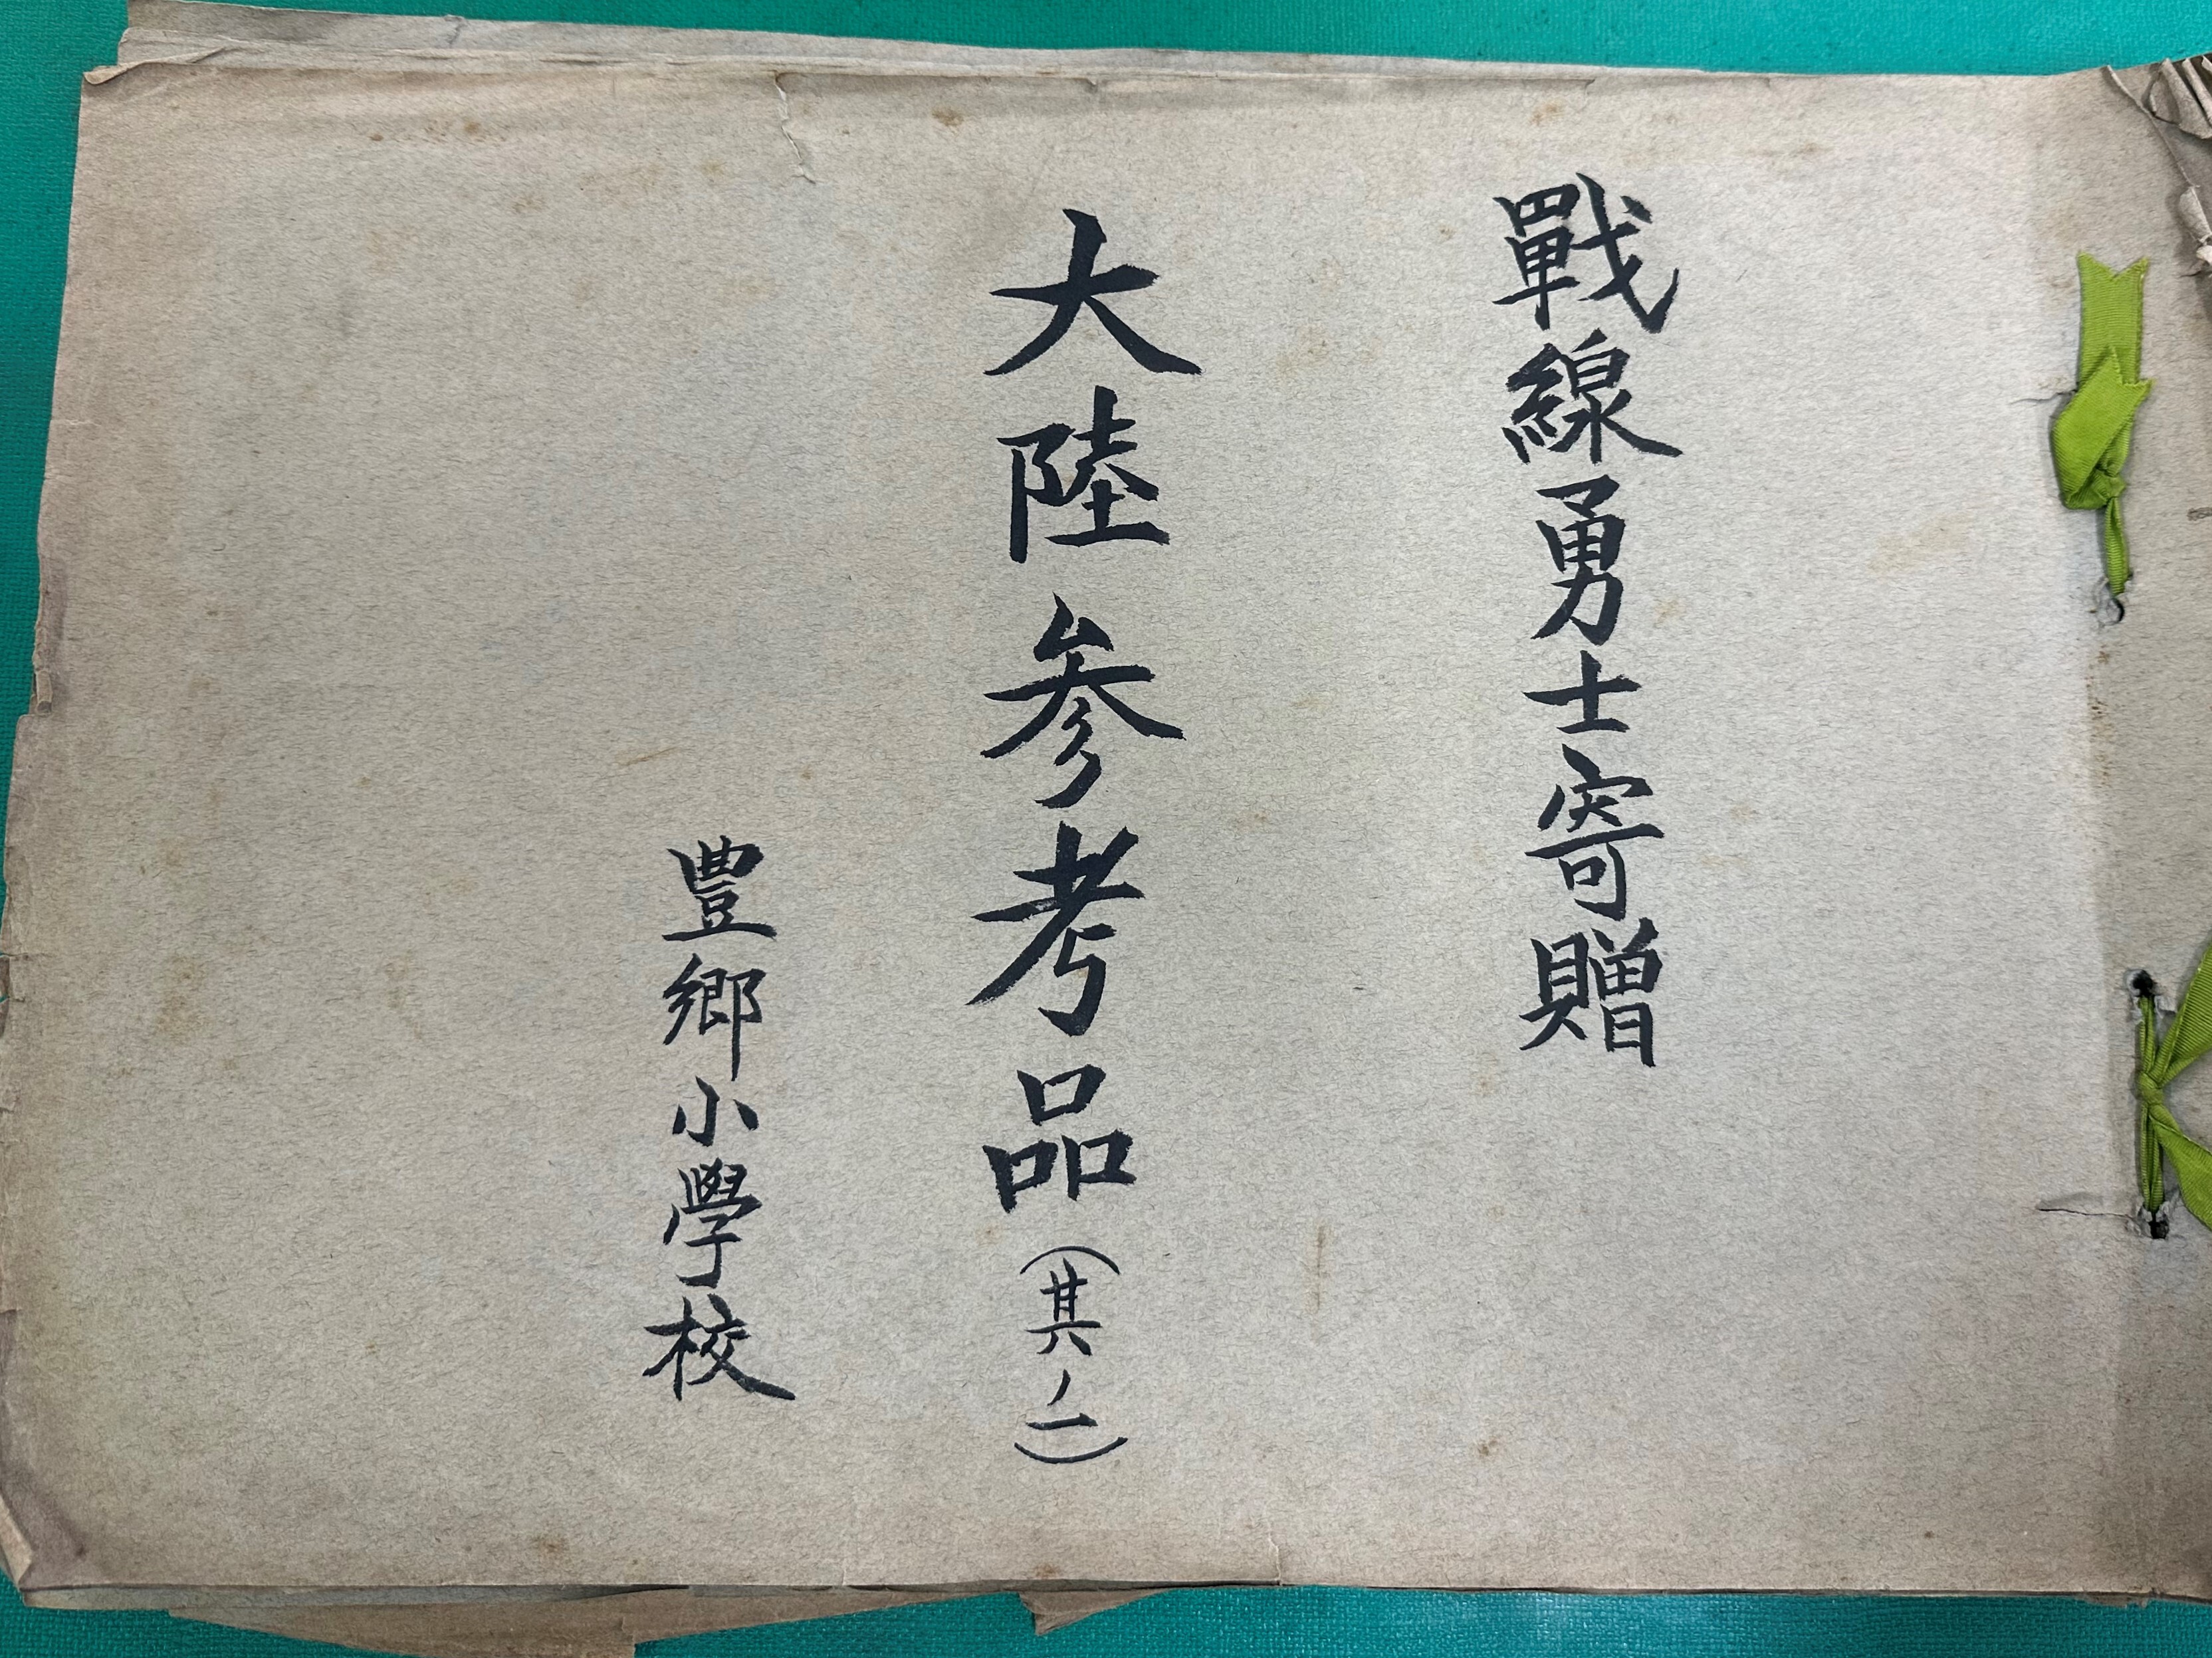 戰線勇士寄贈
大陸参考品(其ノ二)
豊郷小學校